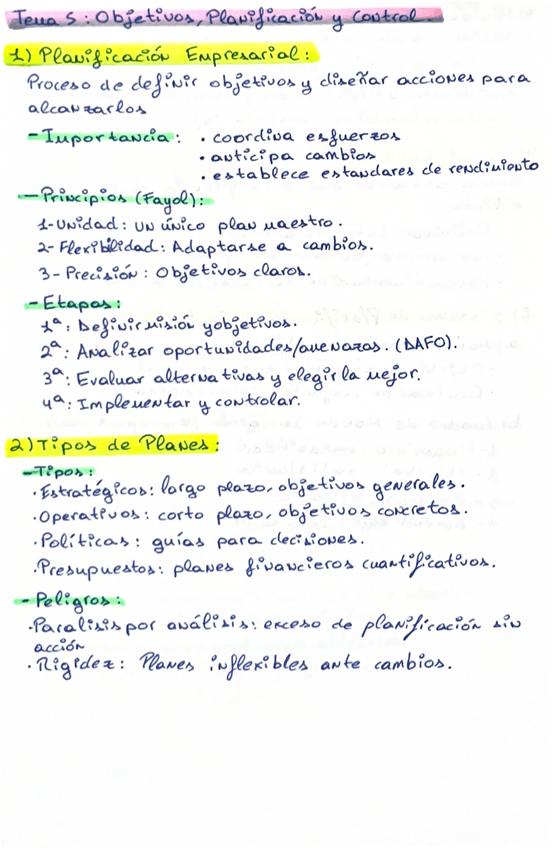 Tema 5: Objetivos, Planificación y Control.
1) Planificación Empresarial:
Proceso de definir objetivos y diseñar acciones para
alcanzarlos
- Importancia: · coordina esfuerzos
· anticipa cambios
· establece estandares de rendimiento
- Principios (Fayol):
1- Unidad: un único plan maestro.
2- Flexibilidad: Adaptarse a cambios.
3- Precisión: Objetivos claros.
- Etapas:
1ª: Definir misión y objetivos.
2ª: Analizar oportunidades/amenazas. (DAFO).
3ª: Evaluar alternativas y elegir la mejor.
4ª: Implementar y controlar.
2) Tipos de Planes:
- Tipos:
· Estratégicos: largo plazo, objetivos generales.
· Operativos: corto plazo, objetivos concretos.
· Políticas: guías para decisiones.
· Presupuestos: planes financieros cuantificativos.
- Peligros:
· Paralisis por análisis: exceso de planificación sin
acción
· Rigidez: Planes inflexibles ante cambios.